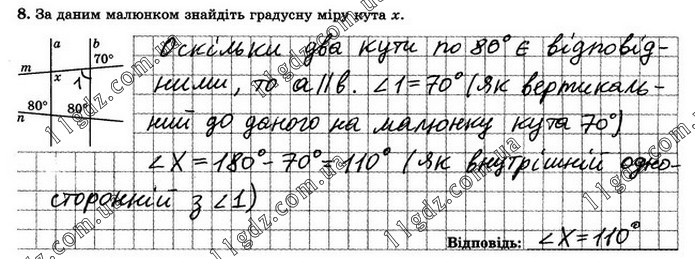 8. За даним малюнком знайдіть градусну міру кута x.
a b
70°
m x 1
80° 80°
n
Оскільки два кути по 80° є відповід-
ними, то a||b. ∠1=70° (як вертикаль-
ний до даного на малюнку кута 70°)
∠X=180°-70°=110° (як внутрішній одно-
сторонній з ∠1)
Відповідь: ∠X=110°
11gdz.com.ua